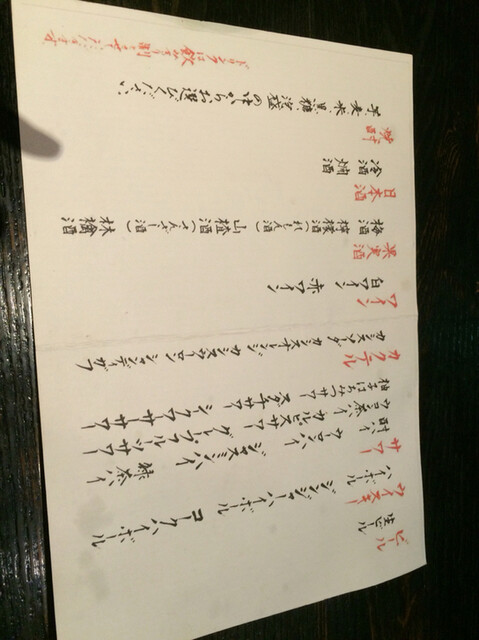 ビール
生ビール
ウイスキー
ハイボール ジンジャーハイボール コークハイボール
サワー
酎ハイ ウーロンハイ ジャスミンハイ 緑茶ハイ
ウコン茶ハイ カルピスサワー グレープフルーツサワー
柚子はちみつサワー スダチサワー シークワーサーサワー
カクテル
カシスソーダ カシスオレンジ カシスウーロン シャンディガフ
ワイン
白ワイン 赤ワイン
果実酒
梅酒 檸檬酒(れもん酒) 山楂酒(さんざし酒) 林檎酒
日本酒
冷酒 燗酒
焼酎
芋 麦 米 黒糖 泡盛の中からお選びください
ドリンクは飲みきり制